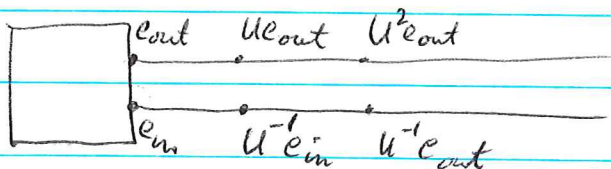 e_out   Ue_out   U²e_out
e_in   U⁻¹e_in   U⁻¹e_out